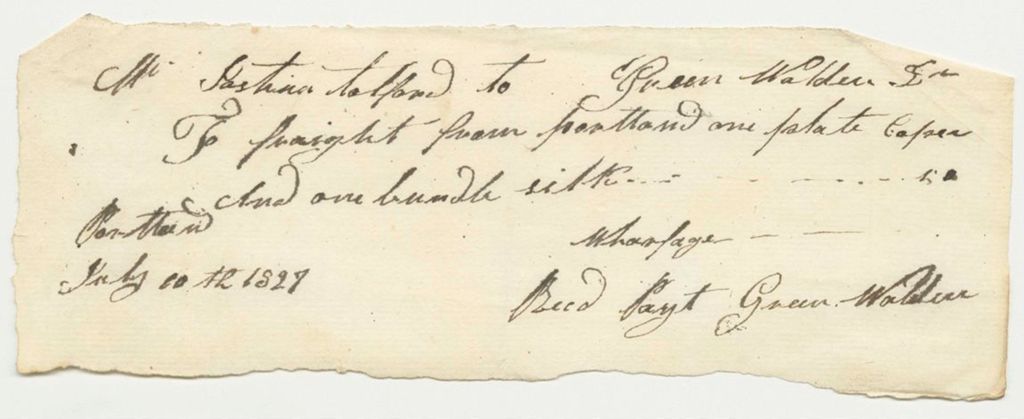 Mr Justin telford to Green Walden Dr
To fraight from portland one plate Coper
And one bundle silk
Portland wharfage
July 10 th 1827
Recd Payt Green Walden